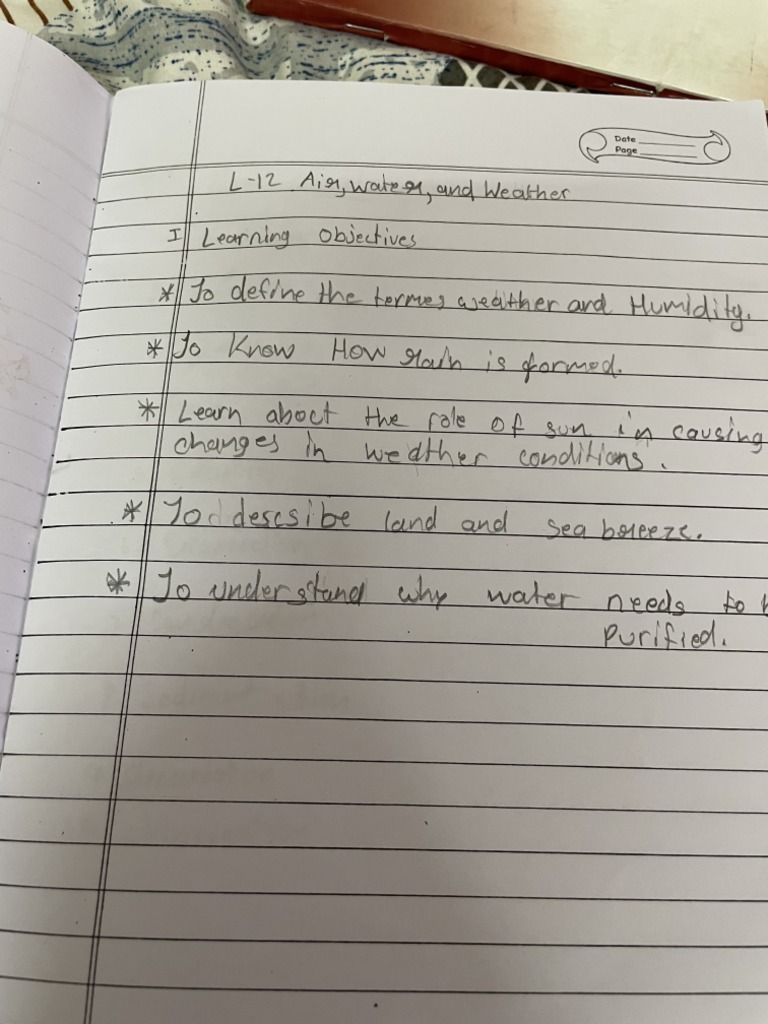 Date
Page
L-12 Air, water, and Weather
I Learning Objectives
* To define the termes weather and Humidity.
* To Know How rain is formed.
* Learn about the role of sun in causing
changes in weather conditions.
* To describe land and sea breeze.
* To understand why water needs to
purified.